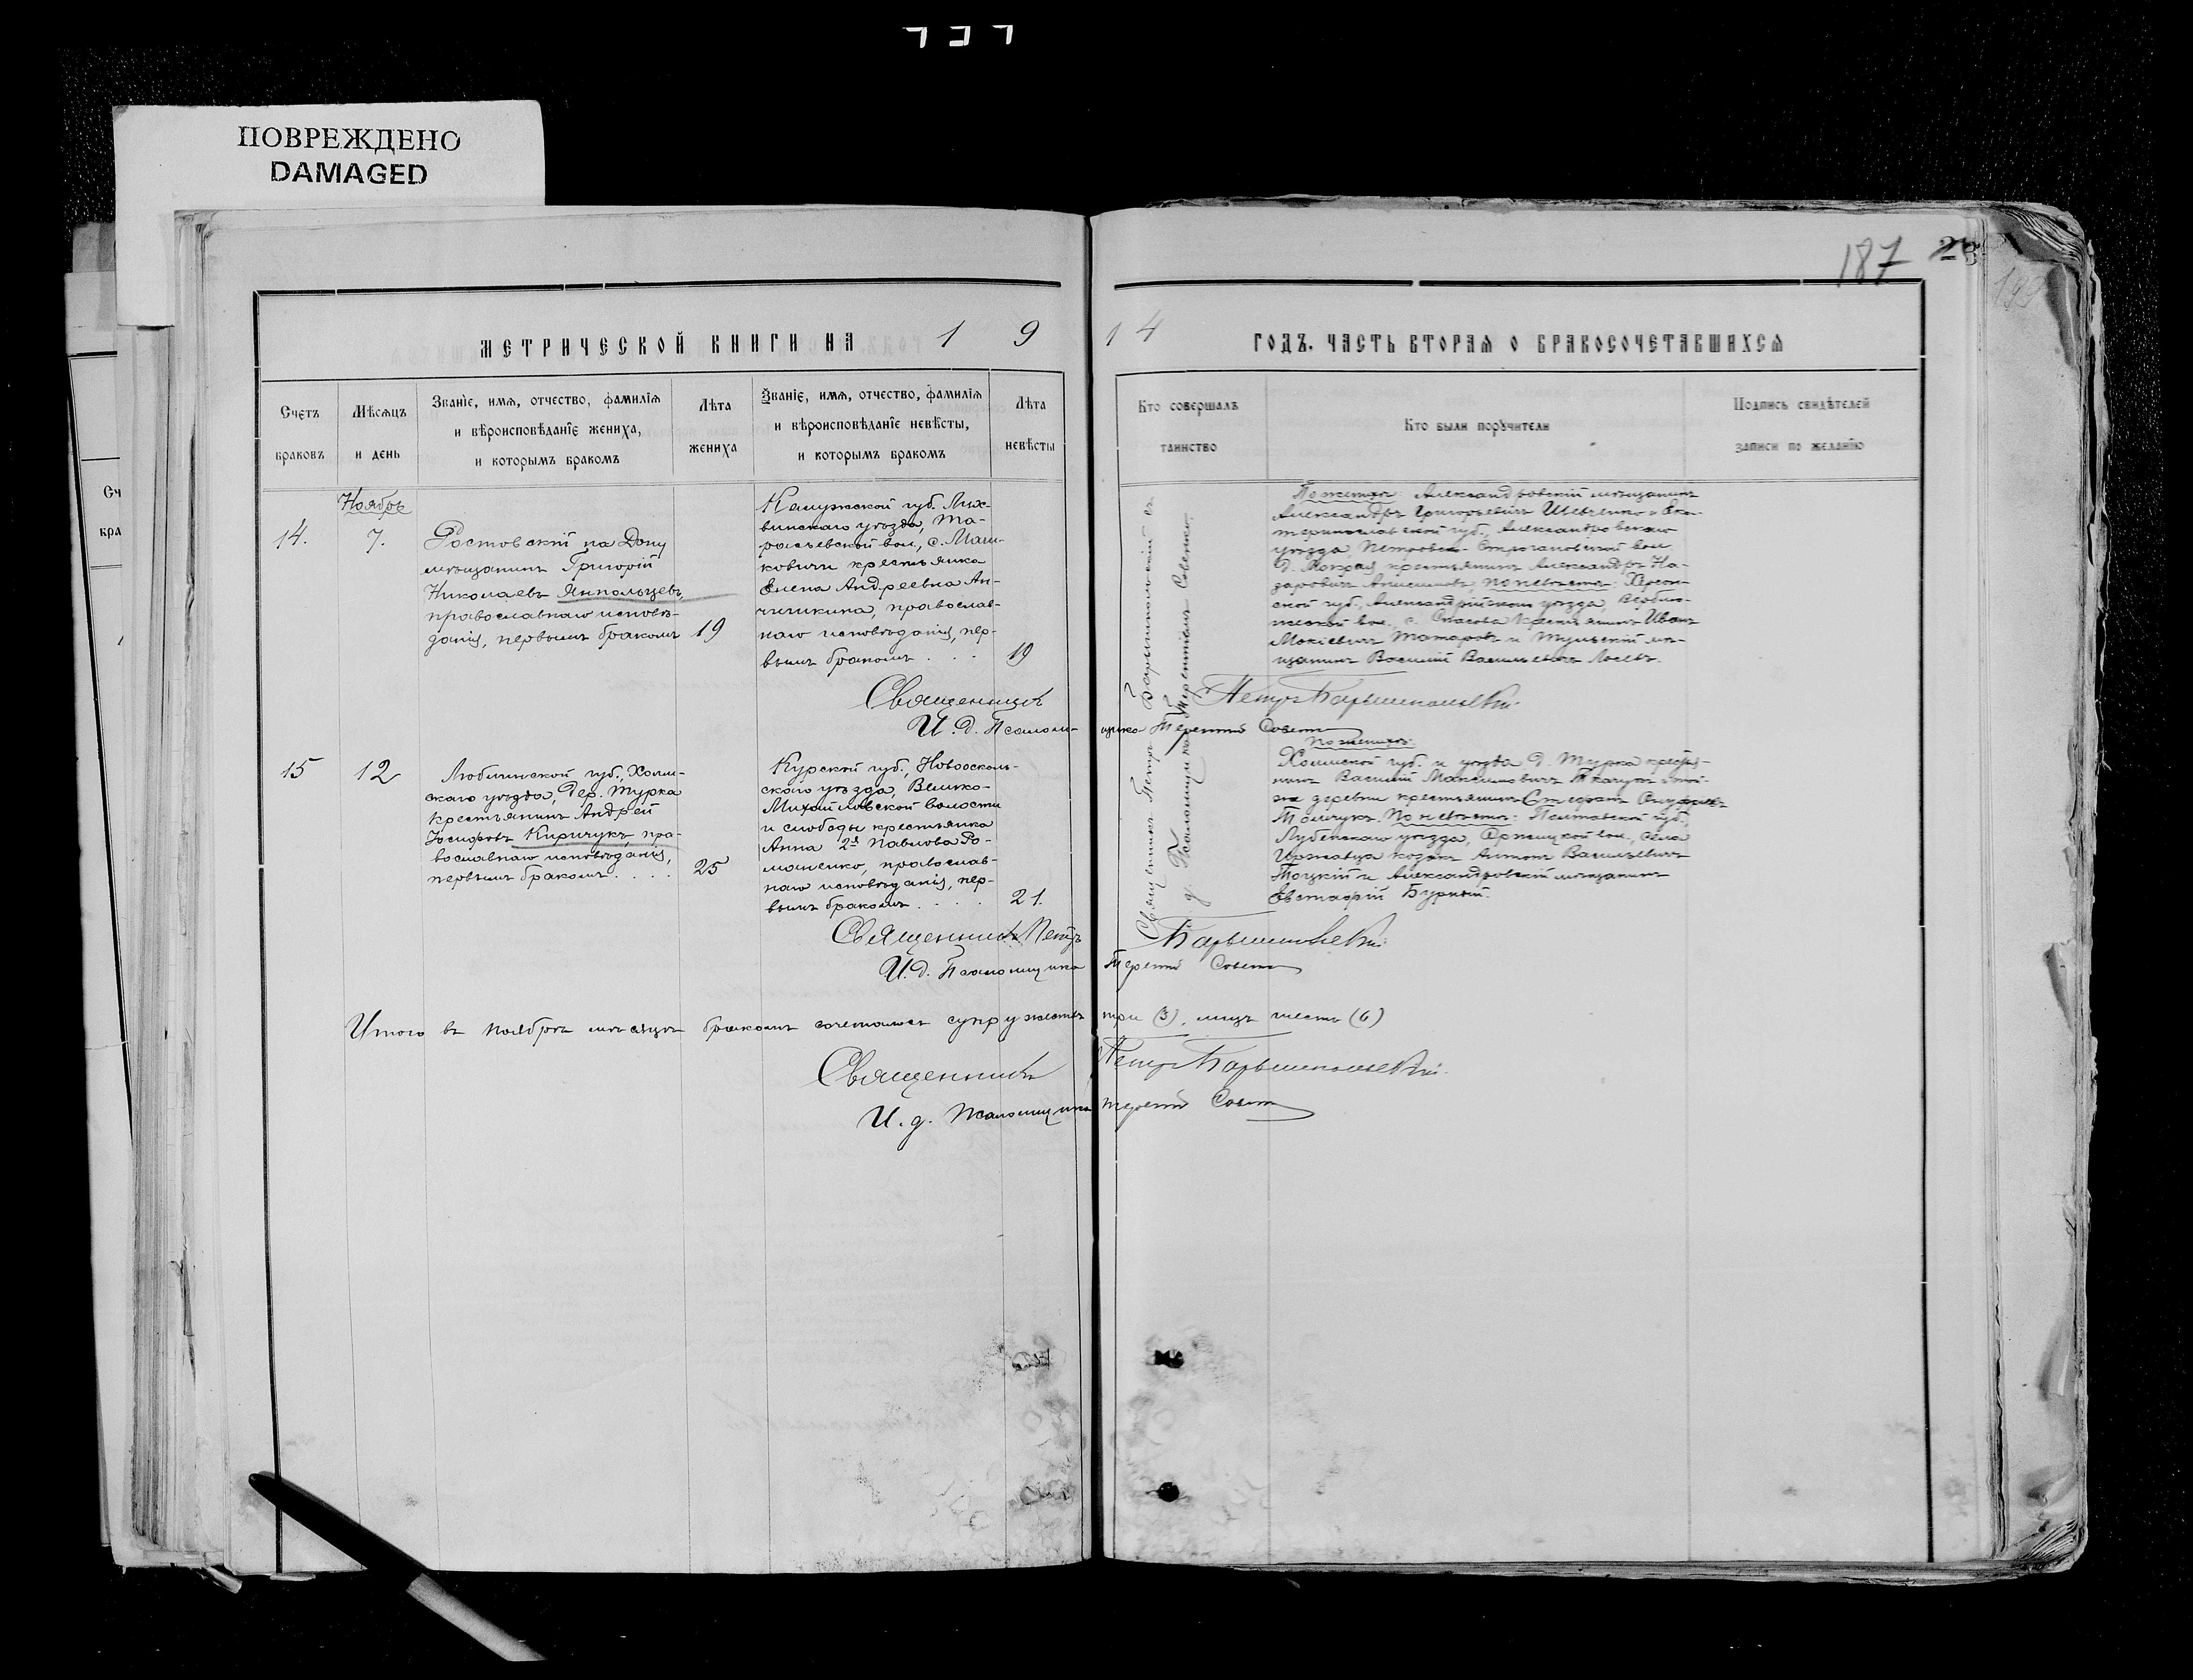 ПОВРЕЖДЕНО
DAMAGED
187
МЕТРИЧЕСКОЙ КНИГИ НА 1 9
1 4 ГОДЪ. ЧАСТЬ ВТОРАЯ О БРАКОСОЧЕТАВШИХСЯ
Счетъ браковъ
Мѣсяцъ и день
Званіе, имя, отчество, фамилія
и вѣроисповѣданіе жениха,
и которымъ бракомъ
Лѣта жениха
Званіе, имя, отчество, фамилія
и вѣроисповѣданіе невѣсты,
и которымъ бракомъ
Лѣта невѣсты
Кто совершалъ таинство
Кто были поручители
Подпись свидѣтелей записи по желанію
Ноябрь
14.
7.
Ростовскій на Дону
мѣщанинъ Григорій
Николаевъ Янпольцевъ,
православнаго исповѣ-
данія, первымъ бракомъ
19
Калужской губ. Лих-
винскаго уѣзда, Та-
расьевской вол., с. Маш-
ковичи крестьянка
Елена Андреевна Ан-
чишкина, православ-
наго исповѣданія, пер-
вымъ бракомъ . . .
19
Священникъ Петръ
Псаломщика Терентій Совенко
По женихѣ: Александровскій мѣщанинъ
Александръ Григорьевичъ Шевченко и Ека-
теринославской губ., Александровскаго
уѣзда, Петровско- вол.
д. крестьянинъ Александръ На-
заровичъ Анисимовъ; по невѣстѣ: Херсон-
ской губ., Александрійскаго уѣзда, Верблю-
жской вол., с. Спасова крестьянинъ Иванъ
Мокіевичъ Татаровъ и Тульскій мѣ-
щанинъ Василій Васильевичъ Лосевъ.
Священникъ
Петръ
И. д. Псалом-
щика Терентій
15
12
Люблинской губ., Холм-
скаго уѣзда, дер. Турка
крестьянинъ Андрей
Іосифовъ Киричукъ, пра-
вославнаго исповѣданія,
первымъ бракомъ . . . .
25
Курской губ., Новооскол-
скаго уѣзда, Велико-
Михайловской волости
и слободы крестьянка
Анна 2я Павлова Ро-
маненко, православ-
наго исповѣданія, пер-
вымъ бракомъ . . . .
21.
По женихѣ:
Холмской губ. и уѣзда д. Турка крестья-
нинъ Василій Максимовичъ Ткачукъ и той-
же деревни крестьянинъ Стефанъ
По невѣстѣ: Полтавской губ.,
Лубенскаго уѣзда, вол., села
козакъ Антонъ Васильевичъ
Тоцкій и Александровскій мѣщанинъ
Евстафій Бурный.
Священникъ Петръ
И. д. Псаломщика
Терентій
Итого въ ноябрѣ мѣсяцѣ бракомъ сочеталось супружествъ три (3), лицъ шесть (6)
Священникъ
Петръ
И. д. Псаломщика
Терентій